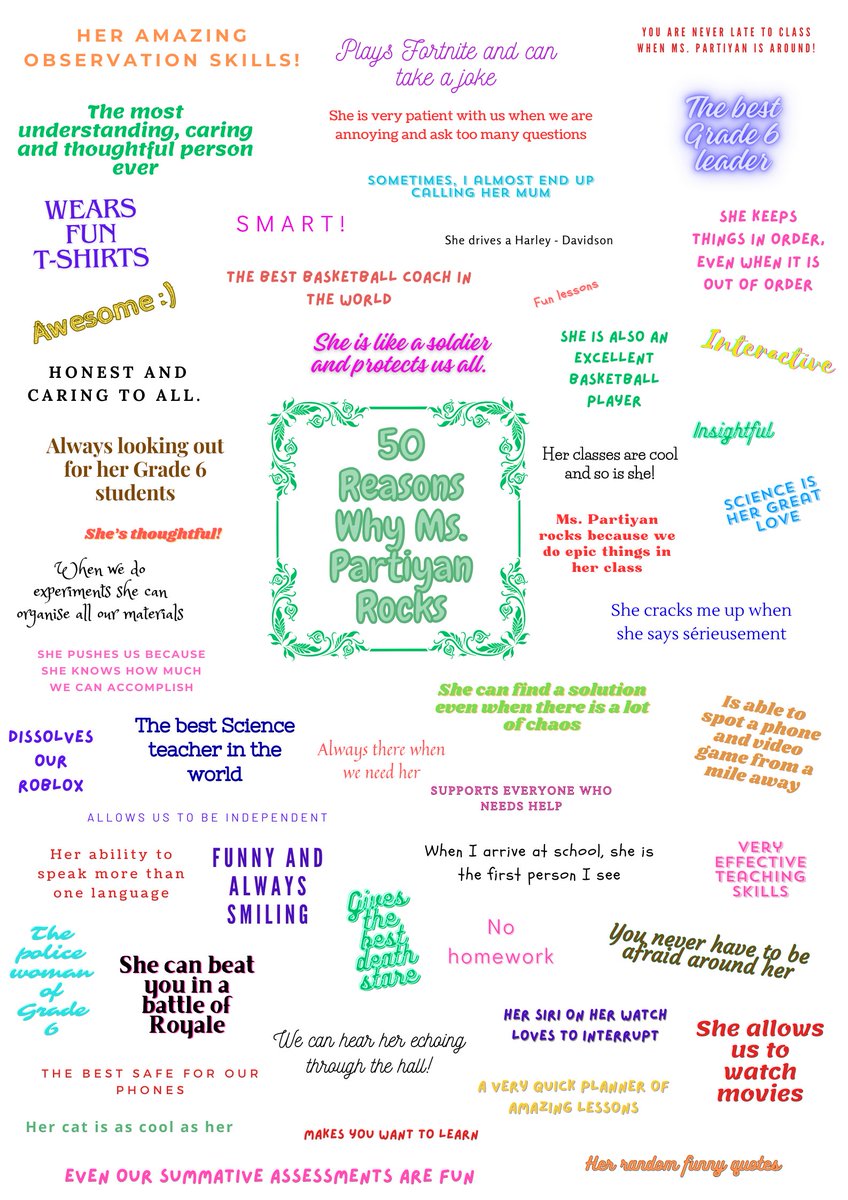 HER AMAZING
OBSERVATION SKILLS!
Plays Fortnite and can
take a joke
YOU ARE NEVER LATE TO CLASS
WHEN MS. PARTIYAN IS AROUND!
The most
understanding, caring
and thoughtful person
ever
She is very patient with us when we are
annoying and ask too many questions
The best
Grade 6
leader
SOMETIMES, I ALMOST END UP
CALLING HER MUM
WEARS
FUN
T-SHIRTS
SMART!
She drives a Harley - Davidson
SHE KEEPS
THINGS IN ORDER,
EVEN WHEN IT IS
OUT OF ORDER
Awesome :)
THE BEST BASKETBALL COACH IN
THE WORLD
Fun lessons
She is like a soldier
and protects us all.
SHE IS ALSO AN
EXCELLENT
BASKETBALL
PLAYER
Interactive
HONEST AND
CARING TO ALL.
Insightful
Always looking out
for her Grade 6
students
50
Reasons
Why Ms.
Partiyan
Rocks
Her classes are cool
and so is she!
SCIENCE IS
HER GREAT
LOVE
She's thoughtful!
Ms. Partiyan
rocks because we
do epic things in
her class
When we do
experiments she can
organise all our materials
She cracks me up when
she says sérieusement
SHE PUSHES US BECAUSE
SHE KNOWS HOW MUCH
WE CAN ACCOMPLISH
She can find a solution
even when there is a lot
of chaos
Is able to
spot a phone
and video
game from a
mile away
DISSOLVES
OUR
ROBLOX
The best Science
teacher in the
world
Always there when
we need her
SUPPORTS EVERYONE WHO
NEEDS HELP
ALLOWS US TO BE INDEPENDENT
Her ability to
speak more than
one language
FUNNY AND
ALWAYS
SMILING
When I arrive at school, she is
the first person I see
VERY
EFFECTIVE
TEACHING
SKILLS
Gives
the
best
death
stare
No
homework
You never have to be
afraid around her
The
police
woman
of
Grade
6
She can beat
you in a
battle of
Royale
HER SIRI ON HER WATCH
LOVES TO INTERRUPT
She allows
us to
watch
movies
We can hear her echoing
through the hall!
THE BEST SAFE FOR OUR
PHONES
A VERY QUICK PLANNER OF
AMAZING LESSONS
Her cat is as cool as her
MAKES YOU WANT TO LEARN
Her random funny quotes
EVEN OUR SUMMATIVE ASSESSMENTS ARE FUN